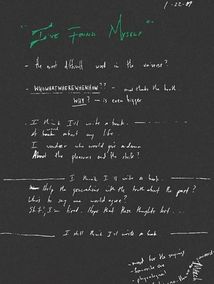 1-22-89
"I've Found Myself"
- the most difficult word in the universe?
- WHOWHATWHEREWHENHOW?? - and starts the book.
WHY? - is even bigger
- I think I'll write a book.
A book about my life.
I wonder who would give a damn
About the pleasures and the shits?
I think I'll write a book.
Help the generations with the truth about the past?
Who's to say one would agree?
Sh*t, I'm tired. Hope that these thoughts last...
I still think I'll write a book
- except for the
- favourite are
- physiological